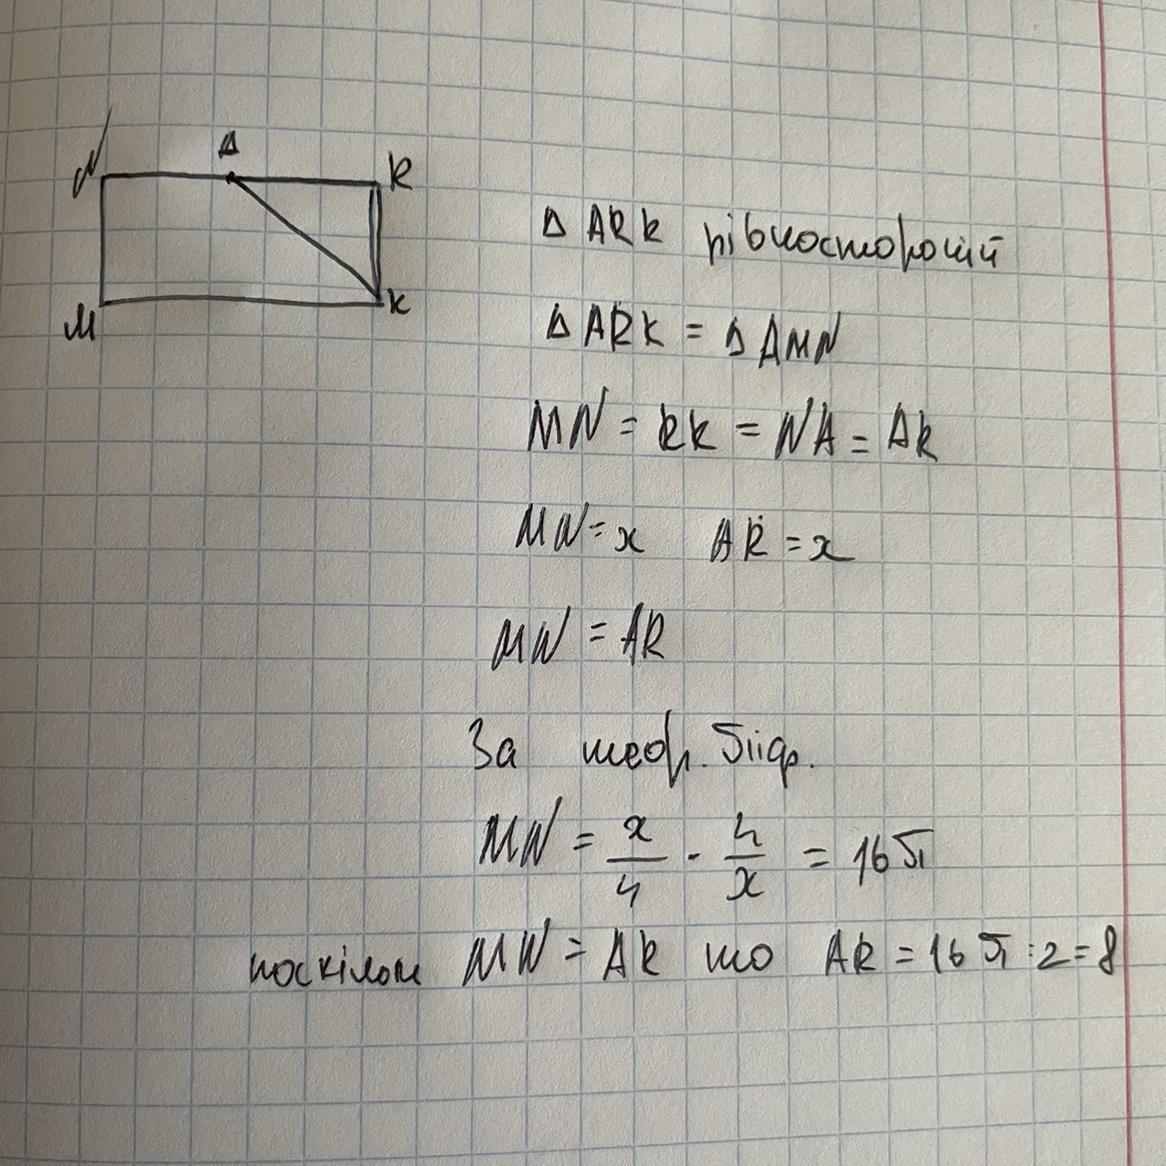 N A R
M K
Δ ARK рівносторонній
Δ ARK = Δ AMN
MN = RK = NA = AR
MN = x AR = x
MN = AR
За теор. Піф.
MN = x/4 · 4/x = 16π
поскільки MN = AR то AR = 16π : 2 = 8